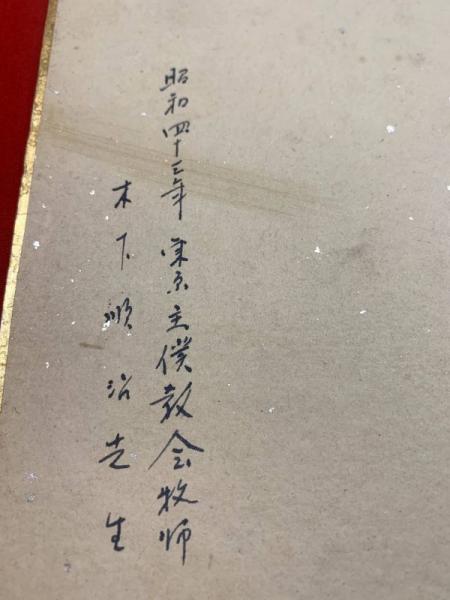 昭和四十三年 東京主僕教会牧师
木下順治先生